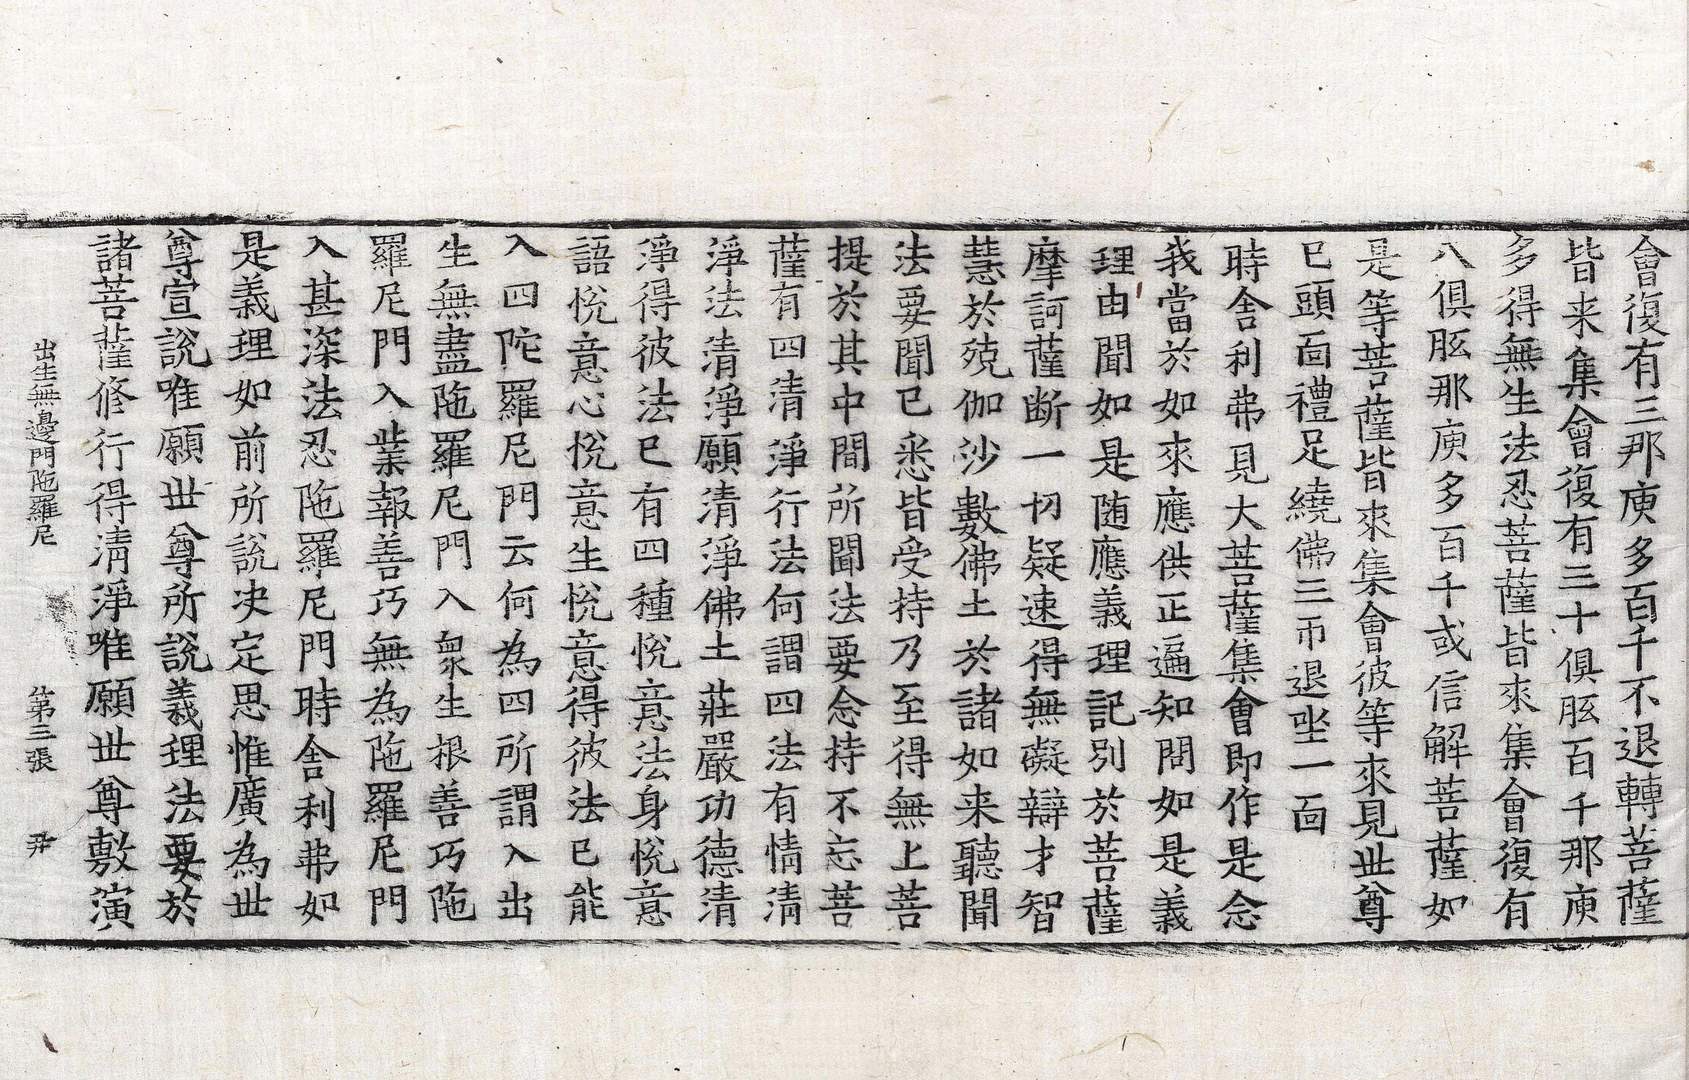 會復有三那庾多百千不退轉菩薩
皆来集會復有三十俱胝百千那庾
多得無生法忍菩薩皆來集會復有
八俱胝那庾多百千或信解菩薩如
是等菩薩皆來集會彼等來見世尊
已頭面禮足繞佛三帀退坐一面
時舍利弗見大菩薩集會即作是念
我當於如來應供正遍知問如是義
理由聞如是随應義理記別於菩薩
摩訶薩断一切疑速得無礙辯才智
慧於殑伽沙數佛土於諸如来聽聞
法要聞已悉皆受持乃至得無上菩
提於其中間所聞法要念持不忘菩
薩有四清淨行法何謂四法有情清
淨法清淨願清淨佛土莊嚴功德清
淨得彼法已有四種悅意法身悅意
語悅意心悅意生悅意得彼法已能
入四陀羅尼門云何為四所謂入出
生無盡陁羅尼門入衆生根善巧陁
羅尼門入業報善巧無為陁羅尼門
入甚深法忍陁羅尼門時舍利弗如
是義理如前所說决定思惟廣為世
尊宣說唯願世尊所說義理法要於
諸菩薩修行得清淨唯願世尊敷演
出生無邊門陁羅尼 第三張 尹